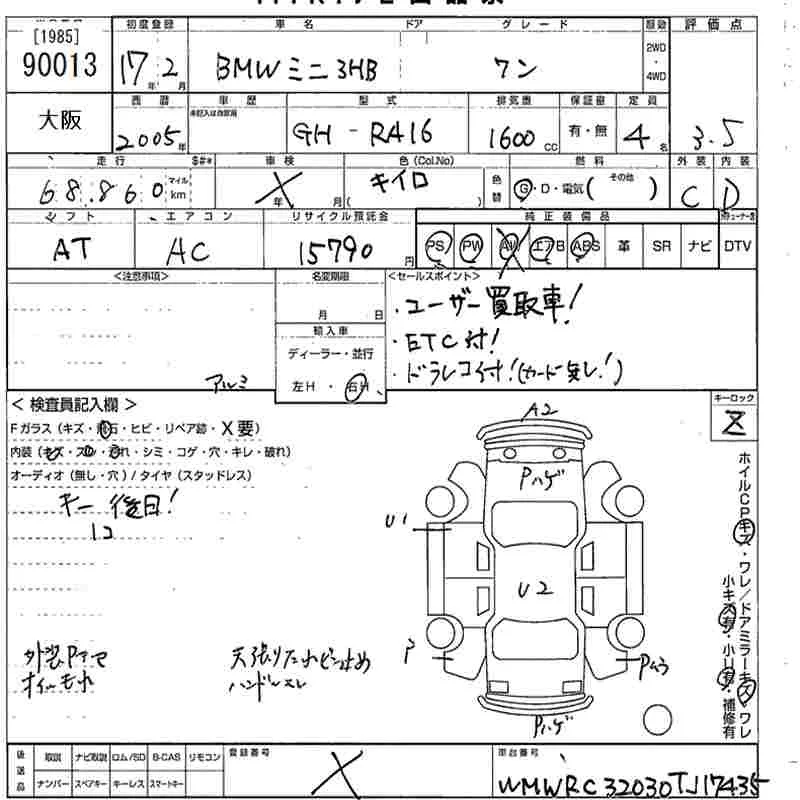 [1985]
90013
初度登録 車名 ドア グレード 駆動 評価点
17年 2月 BMWミニ 3HB ワン 2WD・4WD
大阪
西暦 車歴 型式 排気量 保証書 定員
2005年 未記入は自家用 GH-RA16 1600cc 有・無 4名 3.5
走行 $#* 車検 色(Col.No) 燃料 外装 内装
68.860 マイル km X 年 月 キイロ ( ) 色替 G・D・電気( その他 ) C D
シフト エアコン リサイクル預託金 純正装備品
AT AC 15790円 PS PW AW エアB ABS 革 SR ナビ DTV
<注意事項> 名変期限 <セールスポイント>
月 日
・ユーザー買取車!
輸入車
・ETC付!
ディーラー・並行
・ドラレコ付!(カード無し!)
アルミ
左H・右H
<検査員記入欄>
Fガラス(キズ・飛石・ヒビ・リペア跡・X要)
内装(キズ・スレ・汚れ・シミ・コゲ・穴・キレ・破れ)
オーディオ(無し・穴)/タイヤ(スタッドレス)
キーロック
キー後日!
12
A2
Pハゲ
U1
U2
P
Pムラ
Pハゲ
ホイルCPキズ・ワレ/ドアミラーキズ・ワレ
小キズ有・小U有・補修有
天張りたれピン止め
ハンドルスレ
後送品 取説 ナビ取説 ロム/SD B-CAS リモコン
ナンバー スペアキー キーレス スマートキー
登録番号 X
車台番号
WMWRC32030TJ17435